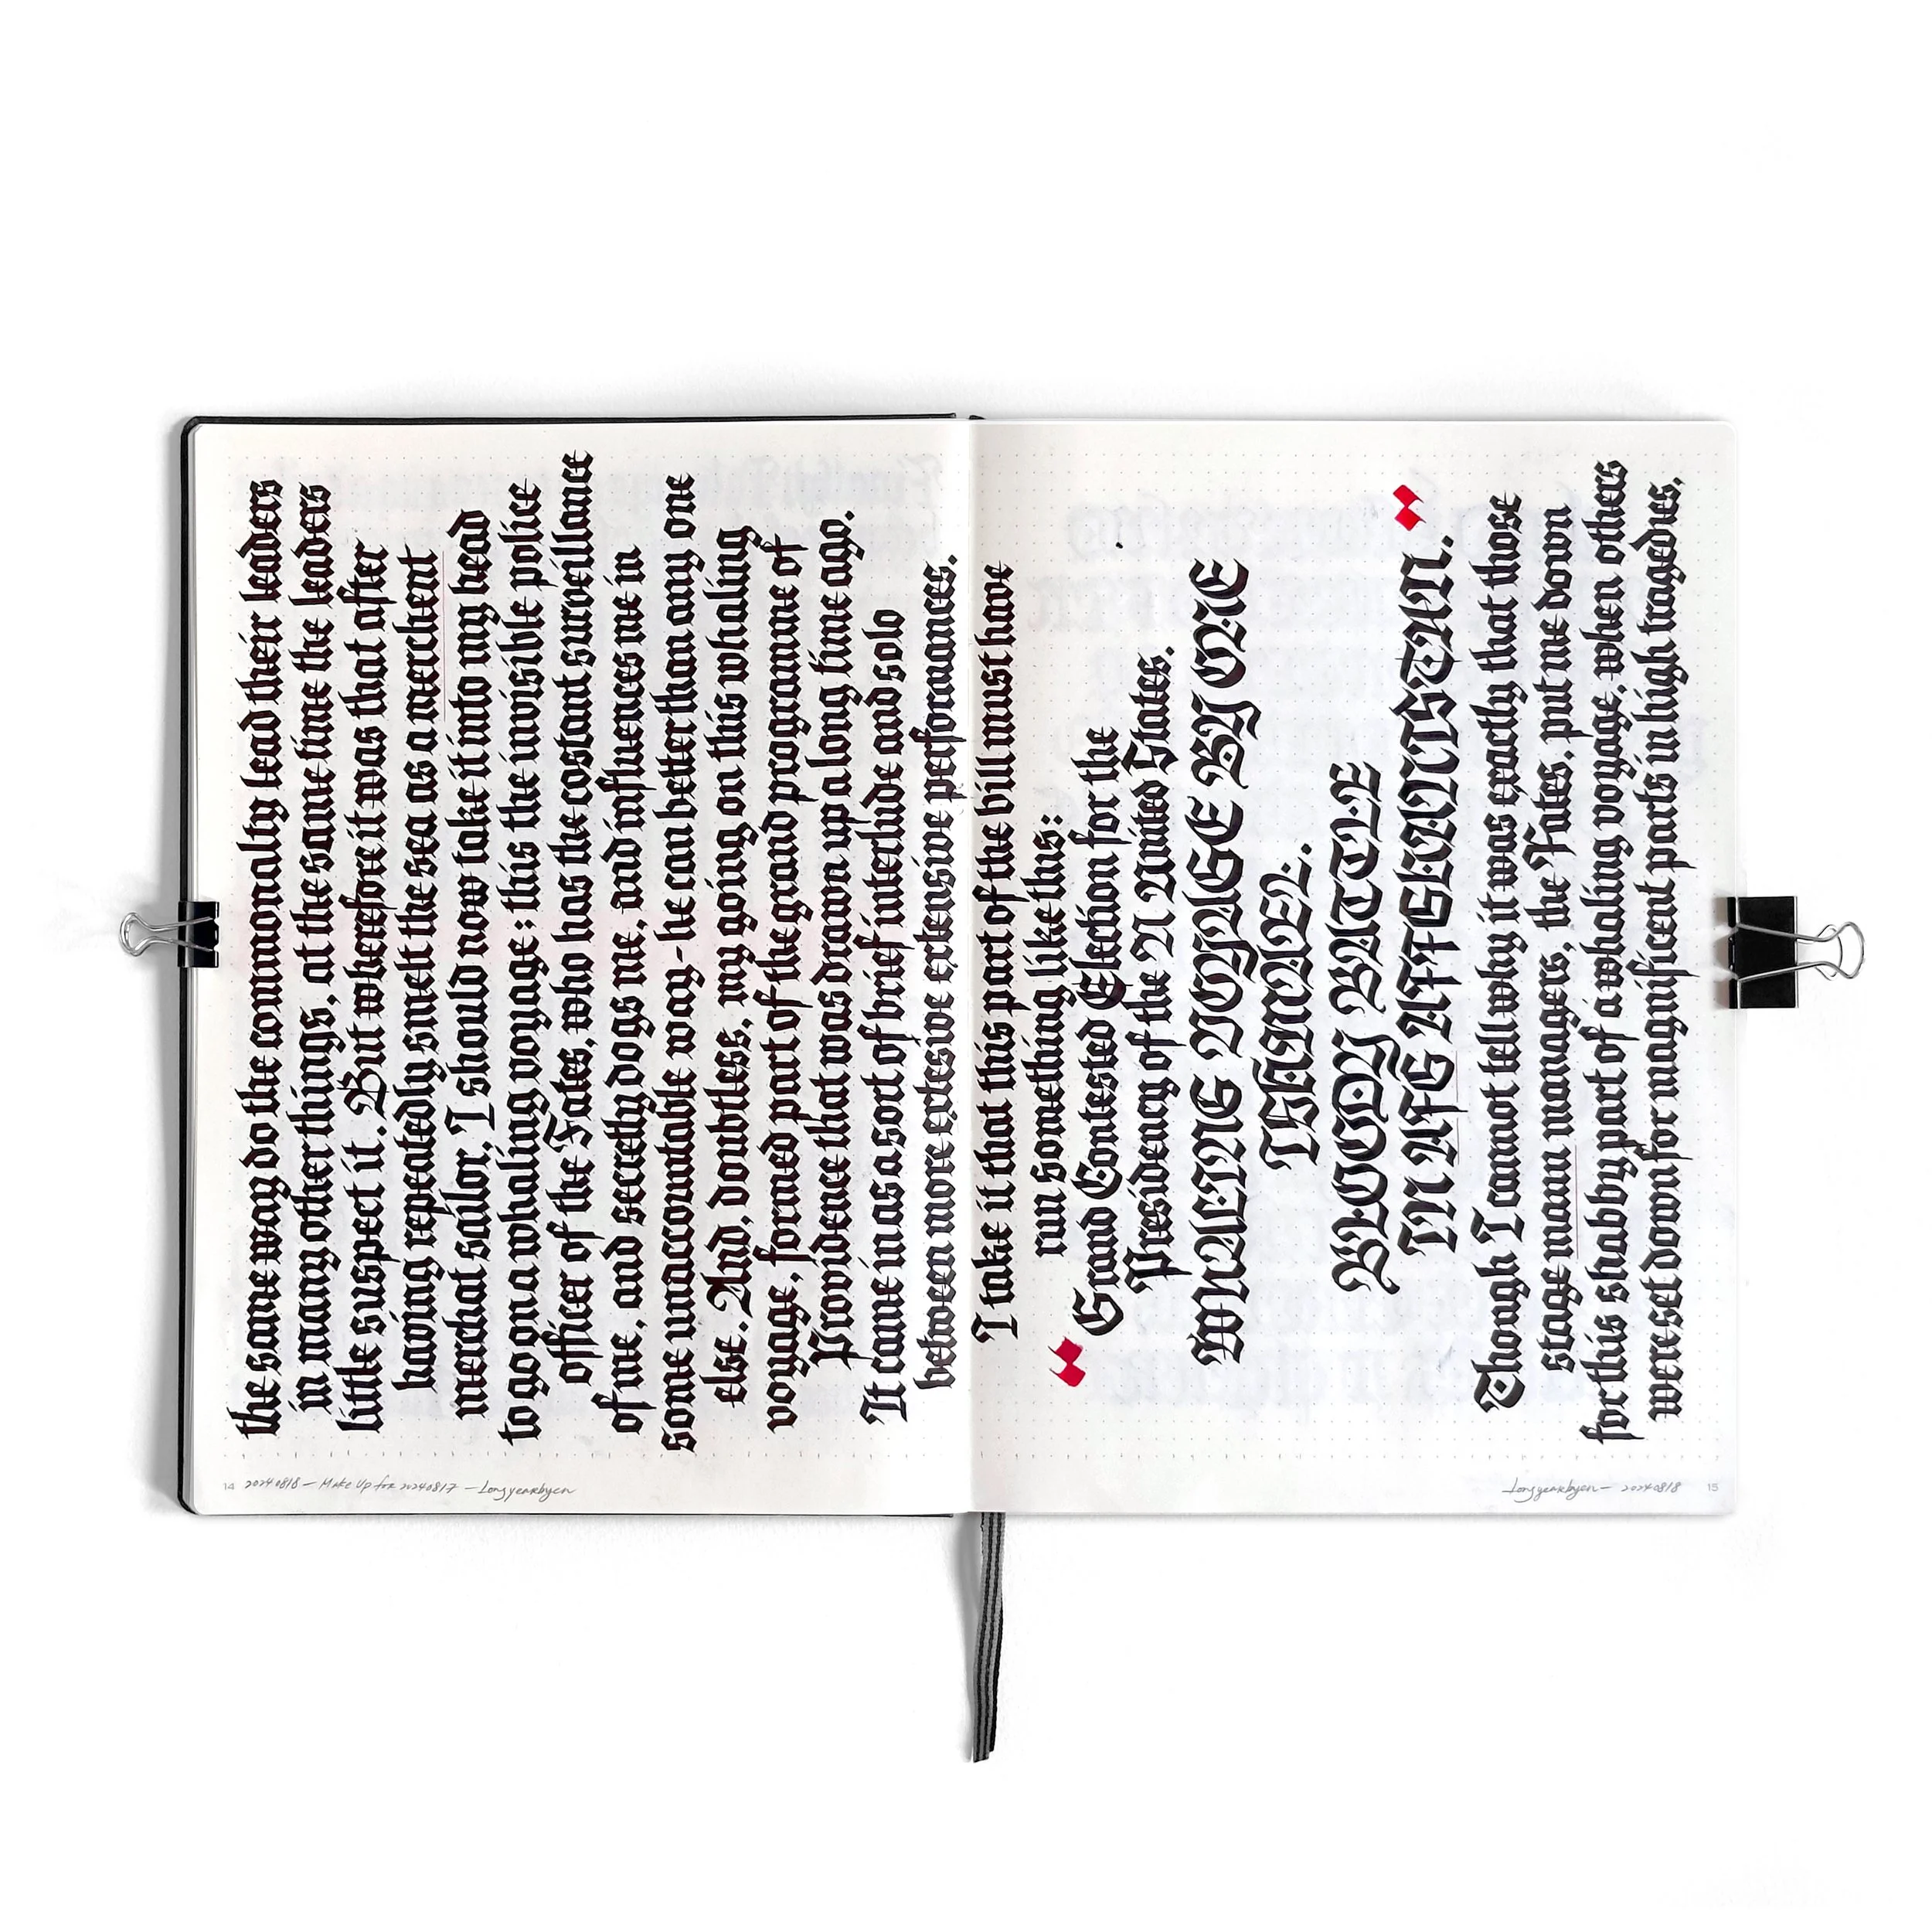 the same way do the commonalty lead their leaders
in many other things, at the same time the leaders
little suspect it. But wherefore it was that after
having repeatedly smelt the sea as a merchent
merchat sailor, I should now take it into my head
to go on a whaling voyage; this the invisible police
officer of the Fates, who has the costant surveillance
of me, and secretly dogs me, and influences me in
some unaccountable way-he can better than any one
else. And, doubtless, my going on this whaling
voyage, formed part of the grand programme of
Providence that was drawn up a long time ago.
It come in as a sort of brief interlude and solo
between more extensive performances.
14 20240818 — Make Up for 20240817 — Longyearbyen
I take it that this part of the bill must have
run something like this:
“Grand Contested Election for the
Presidency of the N United States.
WHALING VOYAGE BY ONE
ISHMAEL.
BLOODY BATTLE
IN AFG AFFGHANISTAN.”
Though I cannot tell why it was exactly that those
stage mann managers, the Fates, put me down
for this shabby part of a whaling voyage, when others
were set down for magnificent parts in high tragedies,
Longyearbyen — 20240818 15